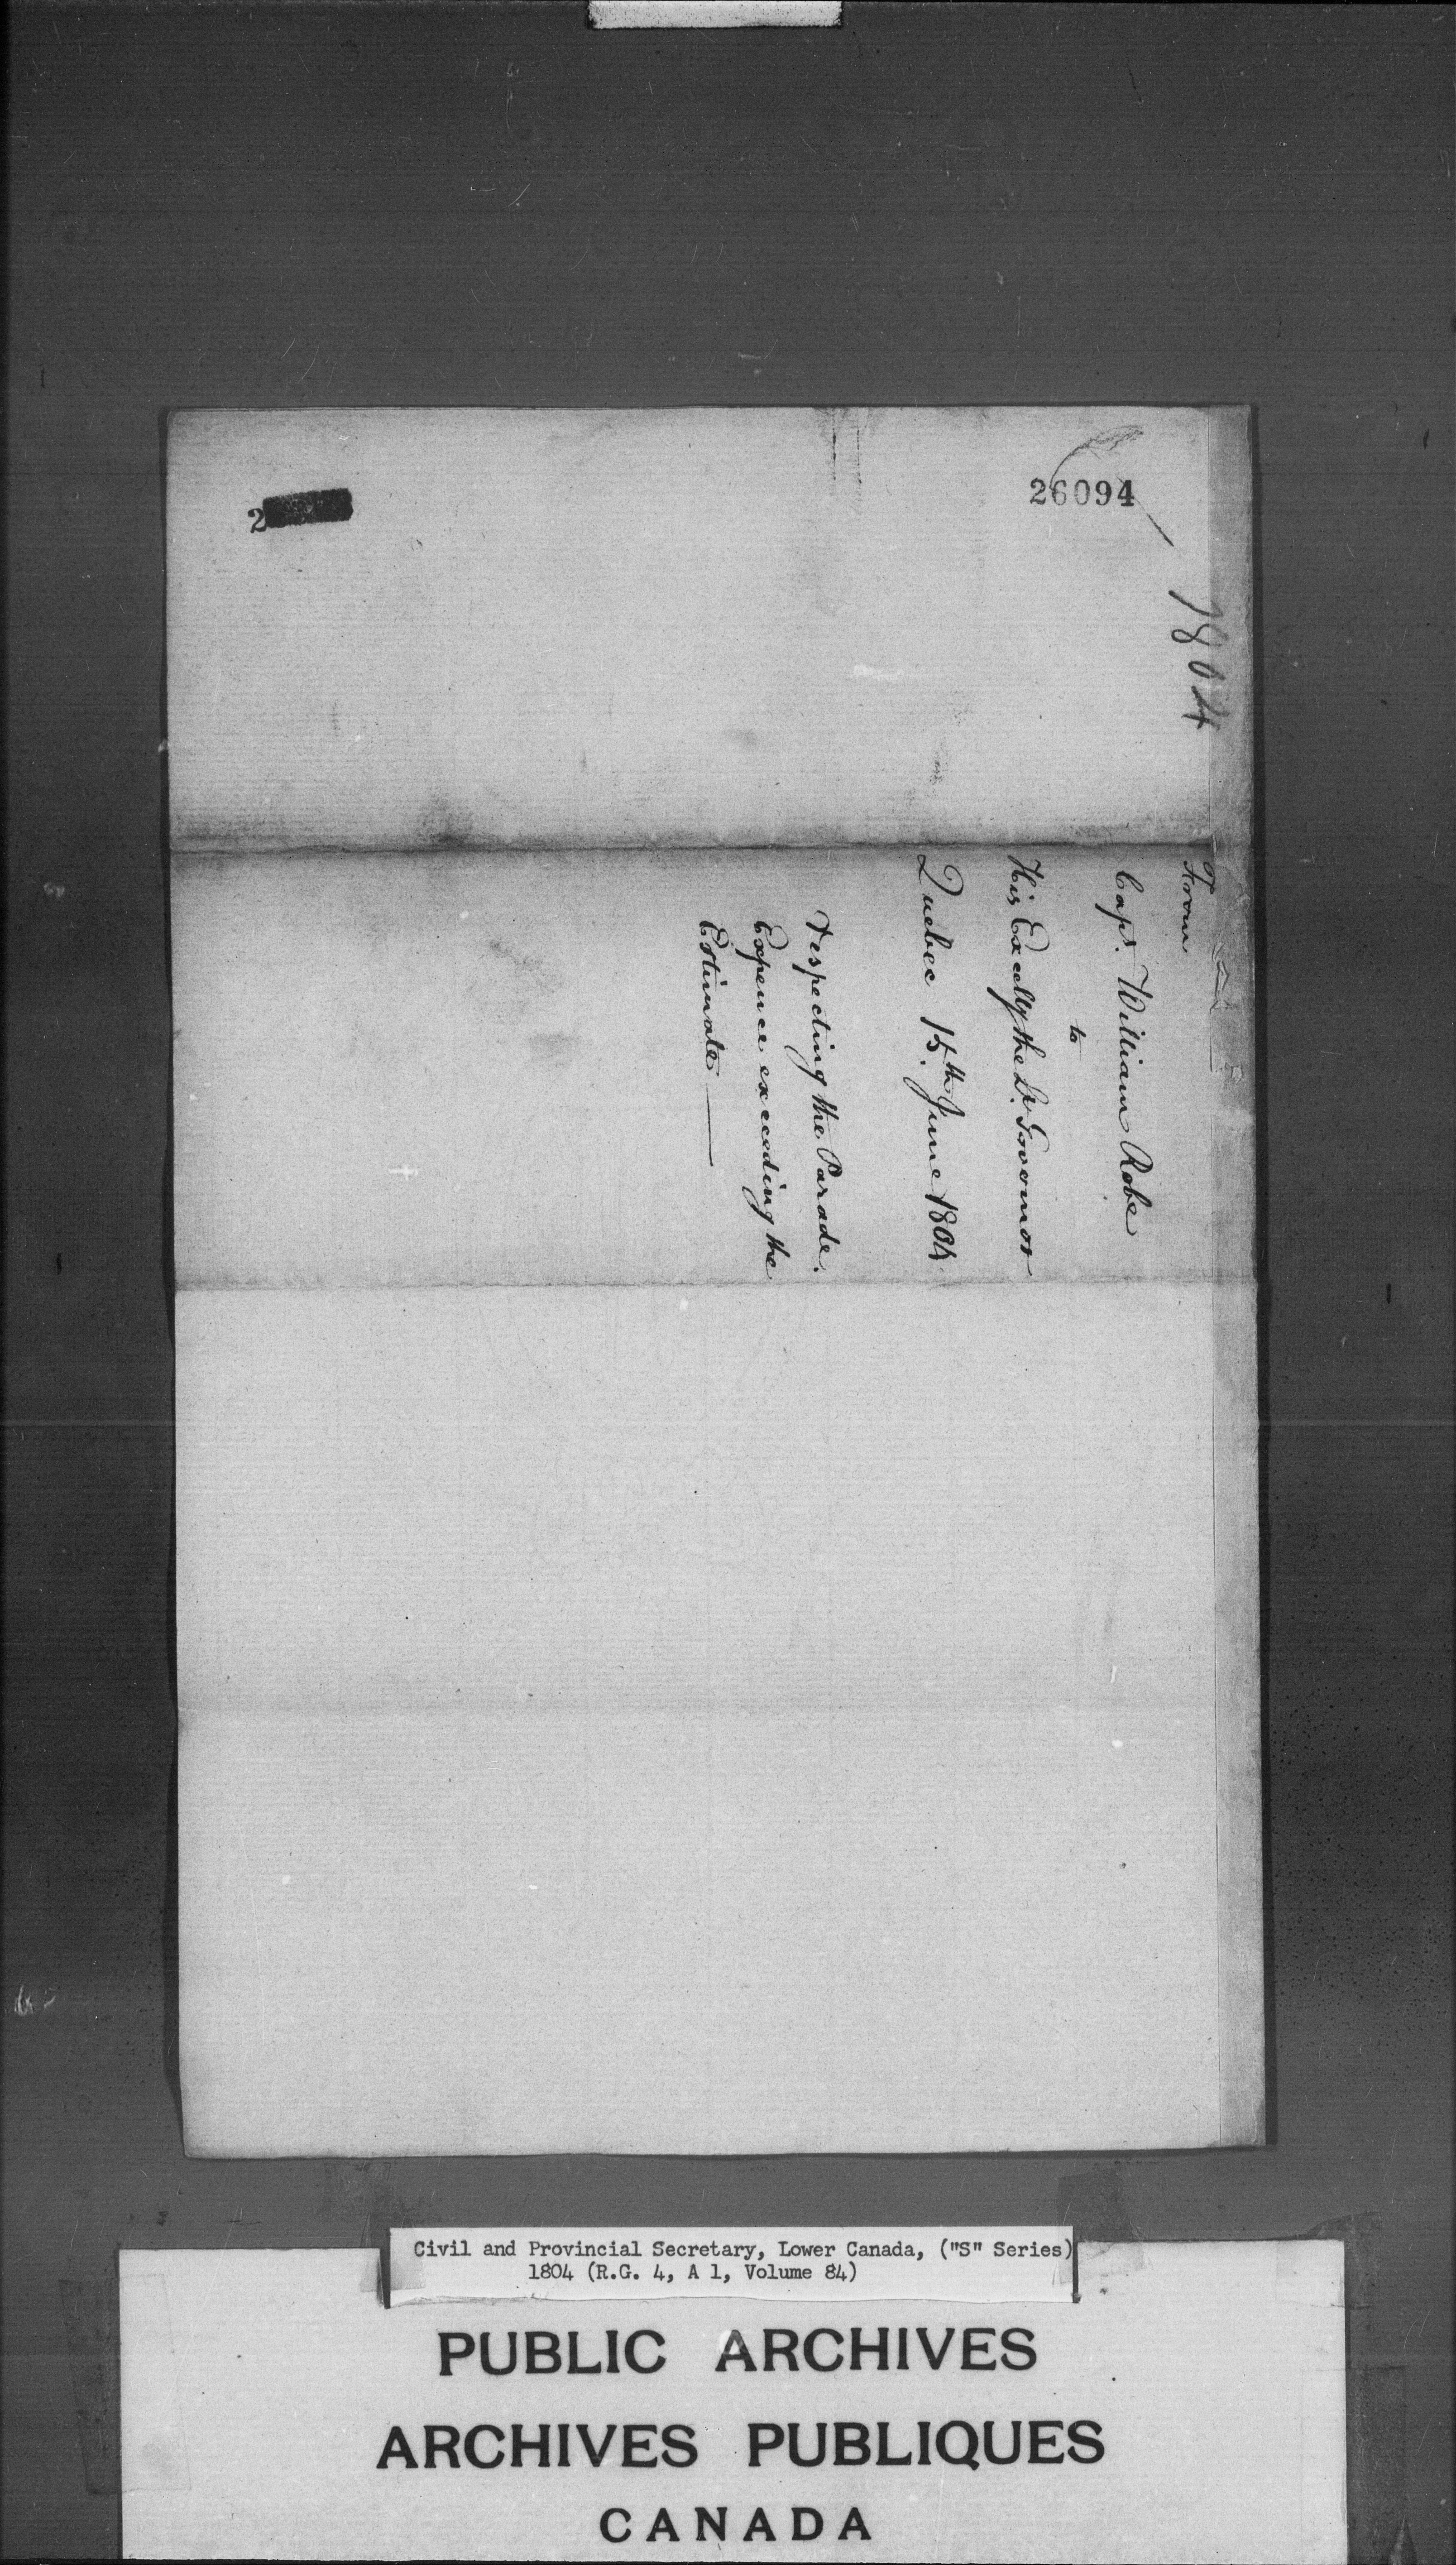 26094
2
1804
From
Capt. William Robe
to
His Excelly the Lt. Governor
Quebec 15th June 1804
respecting the Parade.
Expence exceeding the
Estimate
Civil and Provincial Secretary, Lower Canada, ("S" Series)
1804 (R.G. 4, A 1, Volume 84)
PUBLIC ARCHIVES
ARCHIVES PUBLIQUES
CANADA